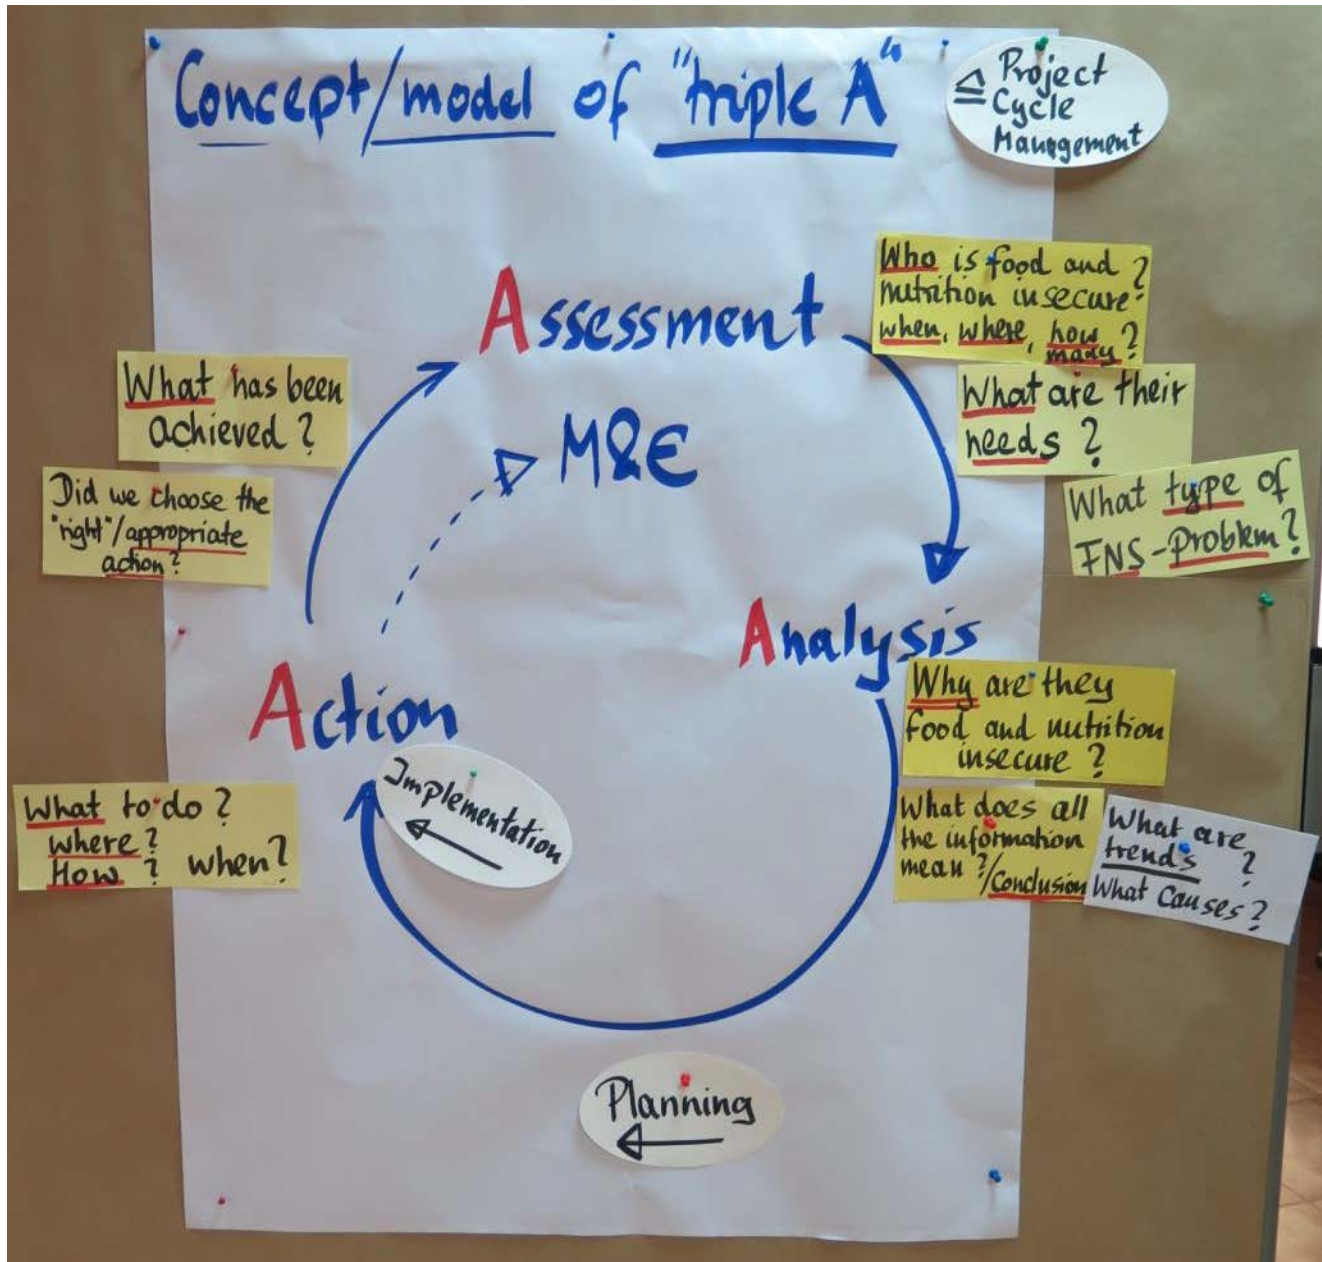 Concept/model of "triple A"
≙ Project
Cycle
Management
Assessment
Who is food and
nutrition insecure?
when, where, how
many?
What are their
needs?
What type of
FNS-Problem?
M&E
What has been
achieved?
Did we choose the
"right"/appropriate
action?
Analysis
Why are they
food and nutrition
insecure?
What does all
the information
mean?/Conclusion
What are
trends?
What causes?
Action
Implementation
What to do?
where?
How? when?
Planning